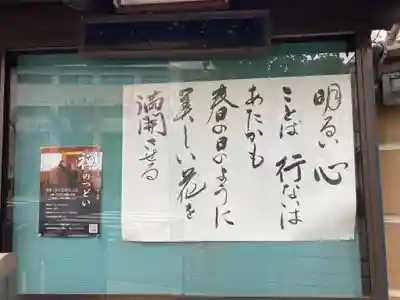 明るい心
ことば 行ないは
あたかも
春の日のように
美しい花を
満開させる
のつどい